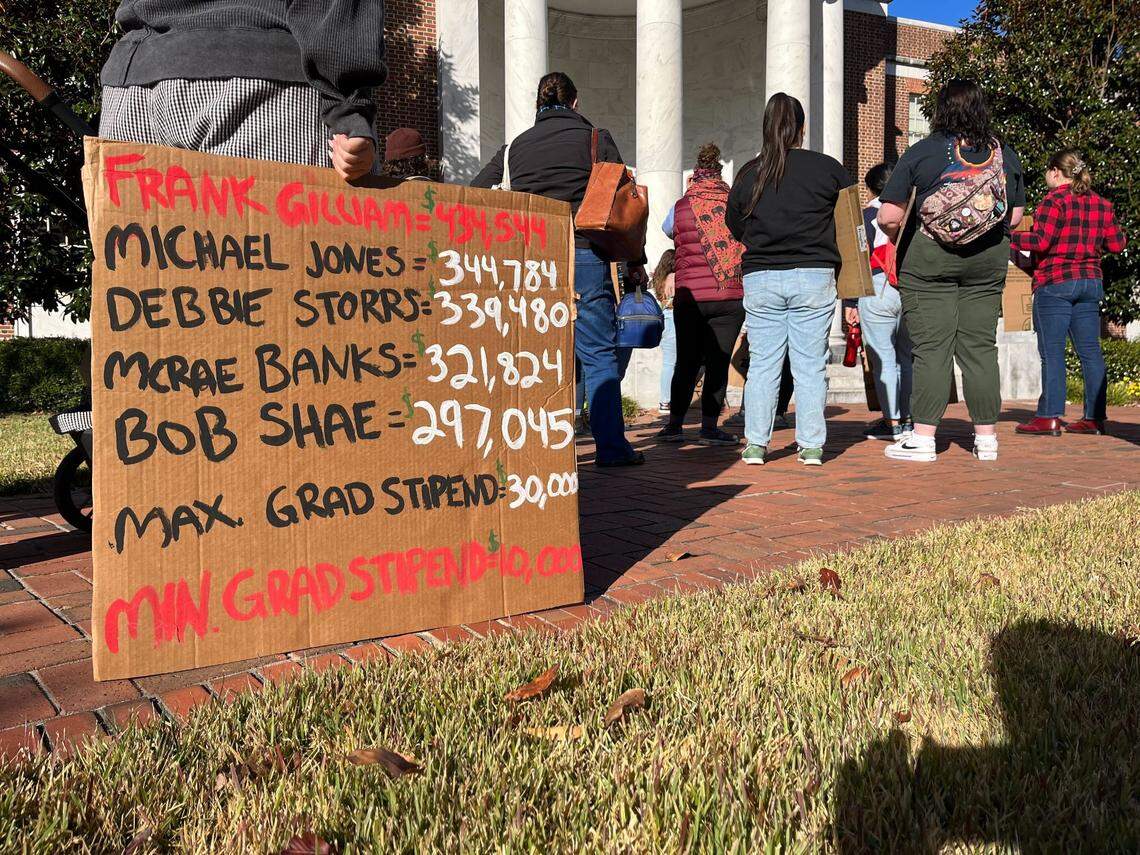 FRANK GILLIAM = $434,544
MICHAEL JONES = $344,784
DEBBIE STORRS = $339,480
MCRAE BANKS = $321,824
BOB SHAE = $297,045
MAX. GRAD STIPEND = $30,000
MIN. GRAD STIPEND = $10,000